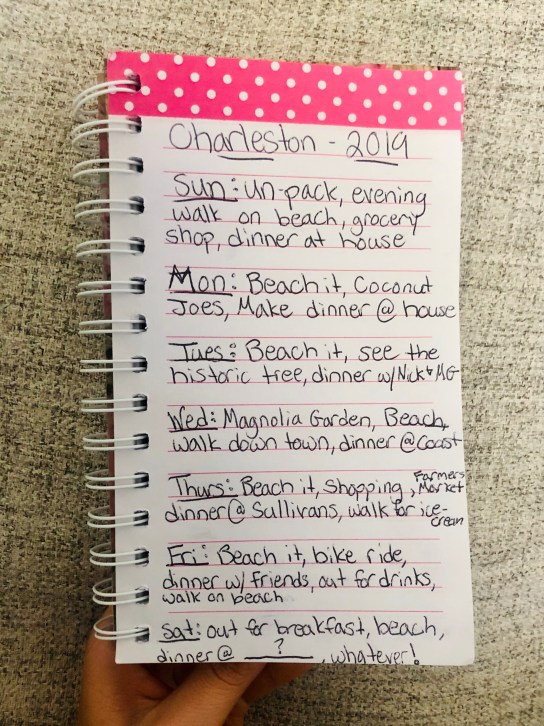 Charleston - 2019
Sun: un-pack, evening
walk on beach, grocery
shop, dinner at house
Mon: Beach it, Coconut
Joes, Make dinner @ house
Tues: Beach it, see the
historic tree, dinner w/Nick & MG
Wed: Magnolia Garden, Beach,
walk down town, dinner @ Coast
Thurs: Beach it, shopping, Farmers Market
dinner @ Sullivans, walk for ice-cream
Fri: Beach it, bike ride,
dinner w/ friends, out for drinks,
walk on beach
Sat: out for breakfast, beach,
dinner @ ___?___, whatever!